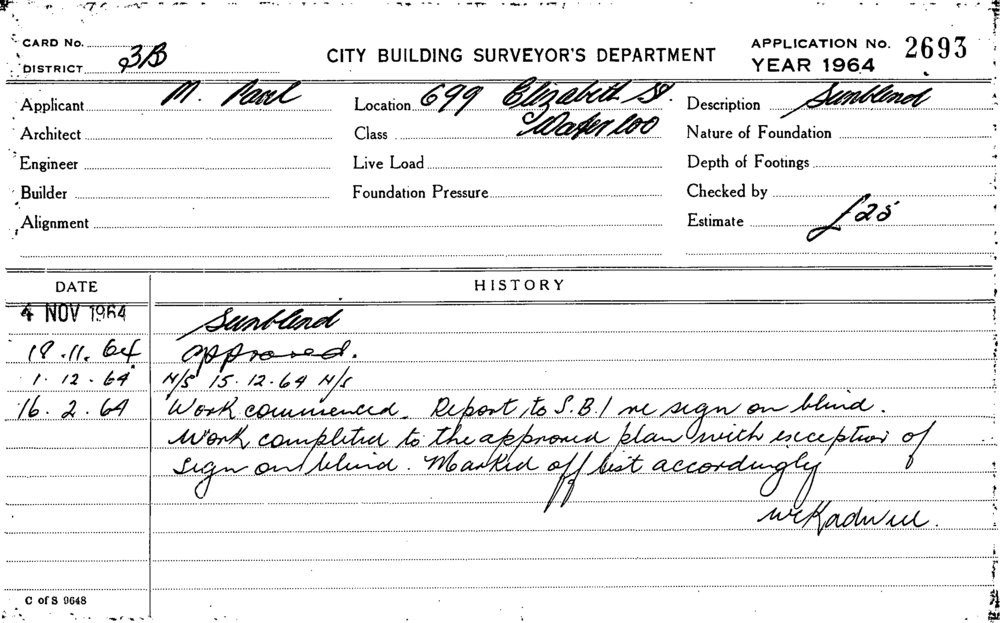 CARD No.
DISTRICT 3B
CITY BUILDING SURVEYOR'S DEPARTMENT
APPLICATION No. 2693
YEAR 1964
Applicant M. Pavel
Location 699 Elizabeth St.
Description Sunblend
Architect
Class Waterloo
Nature of Foundation
Engineer
Live Load
Depth of Footings
Builder
Foundation Pressure
Checked by
Alignment
Estimate £25
DATE
HISTORY
4 NOV 1964
Sunblend
18.11.64 approved.
1.12.64 N/S 15.12.64 N/S
16.2.64 Work commenced. Report to S.B.I re sign on blind.
Work completed to the approved plan with exception of
sign on blind. Marked off list accordingly
C of S 9648